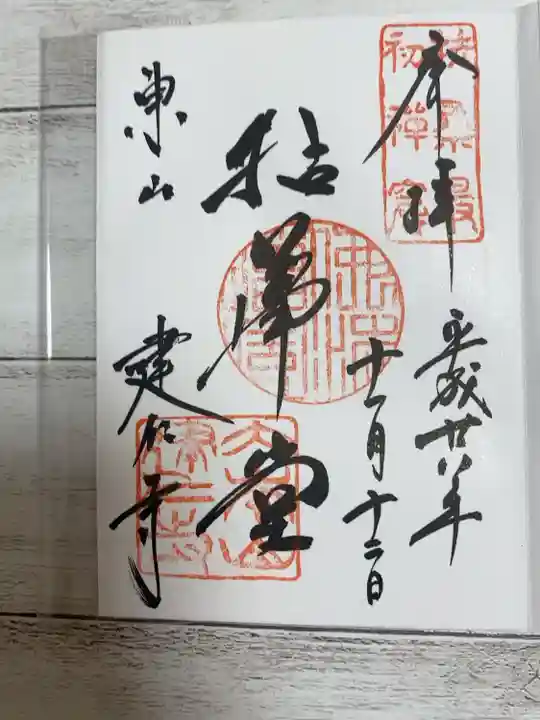 奉拝
扶桑最
初禅窟
平成廿八年
十一月十二日
拈華堂
東山
建仁寺